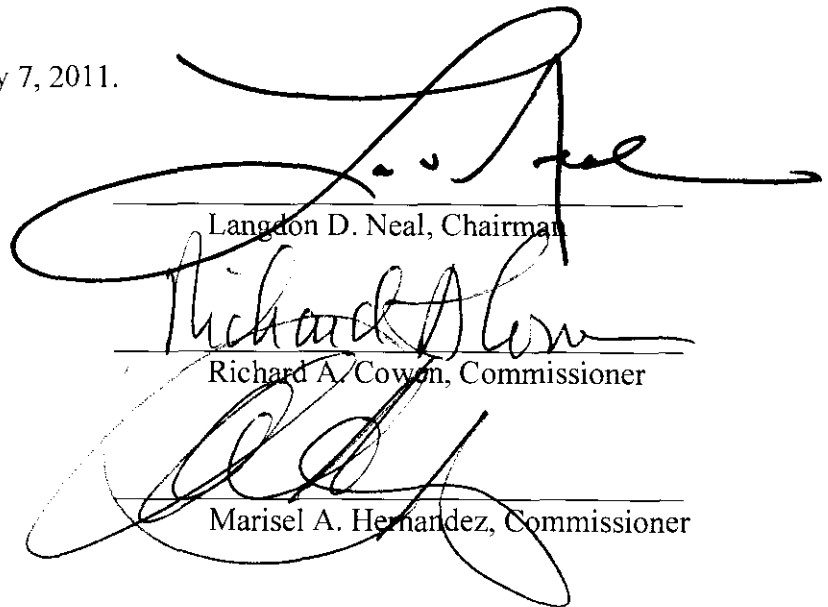 y 7, 2011.
Langdon D. Neal, Chairman
Richard A Cowen
Richard A. Cowen, Commissioner
Marisel A. Hernandez, Commissioner